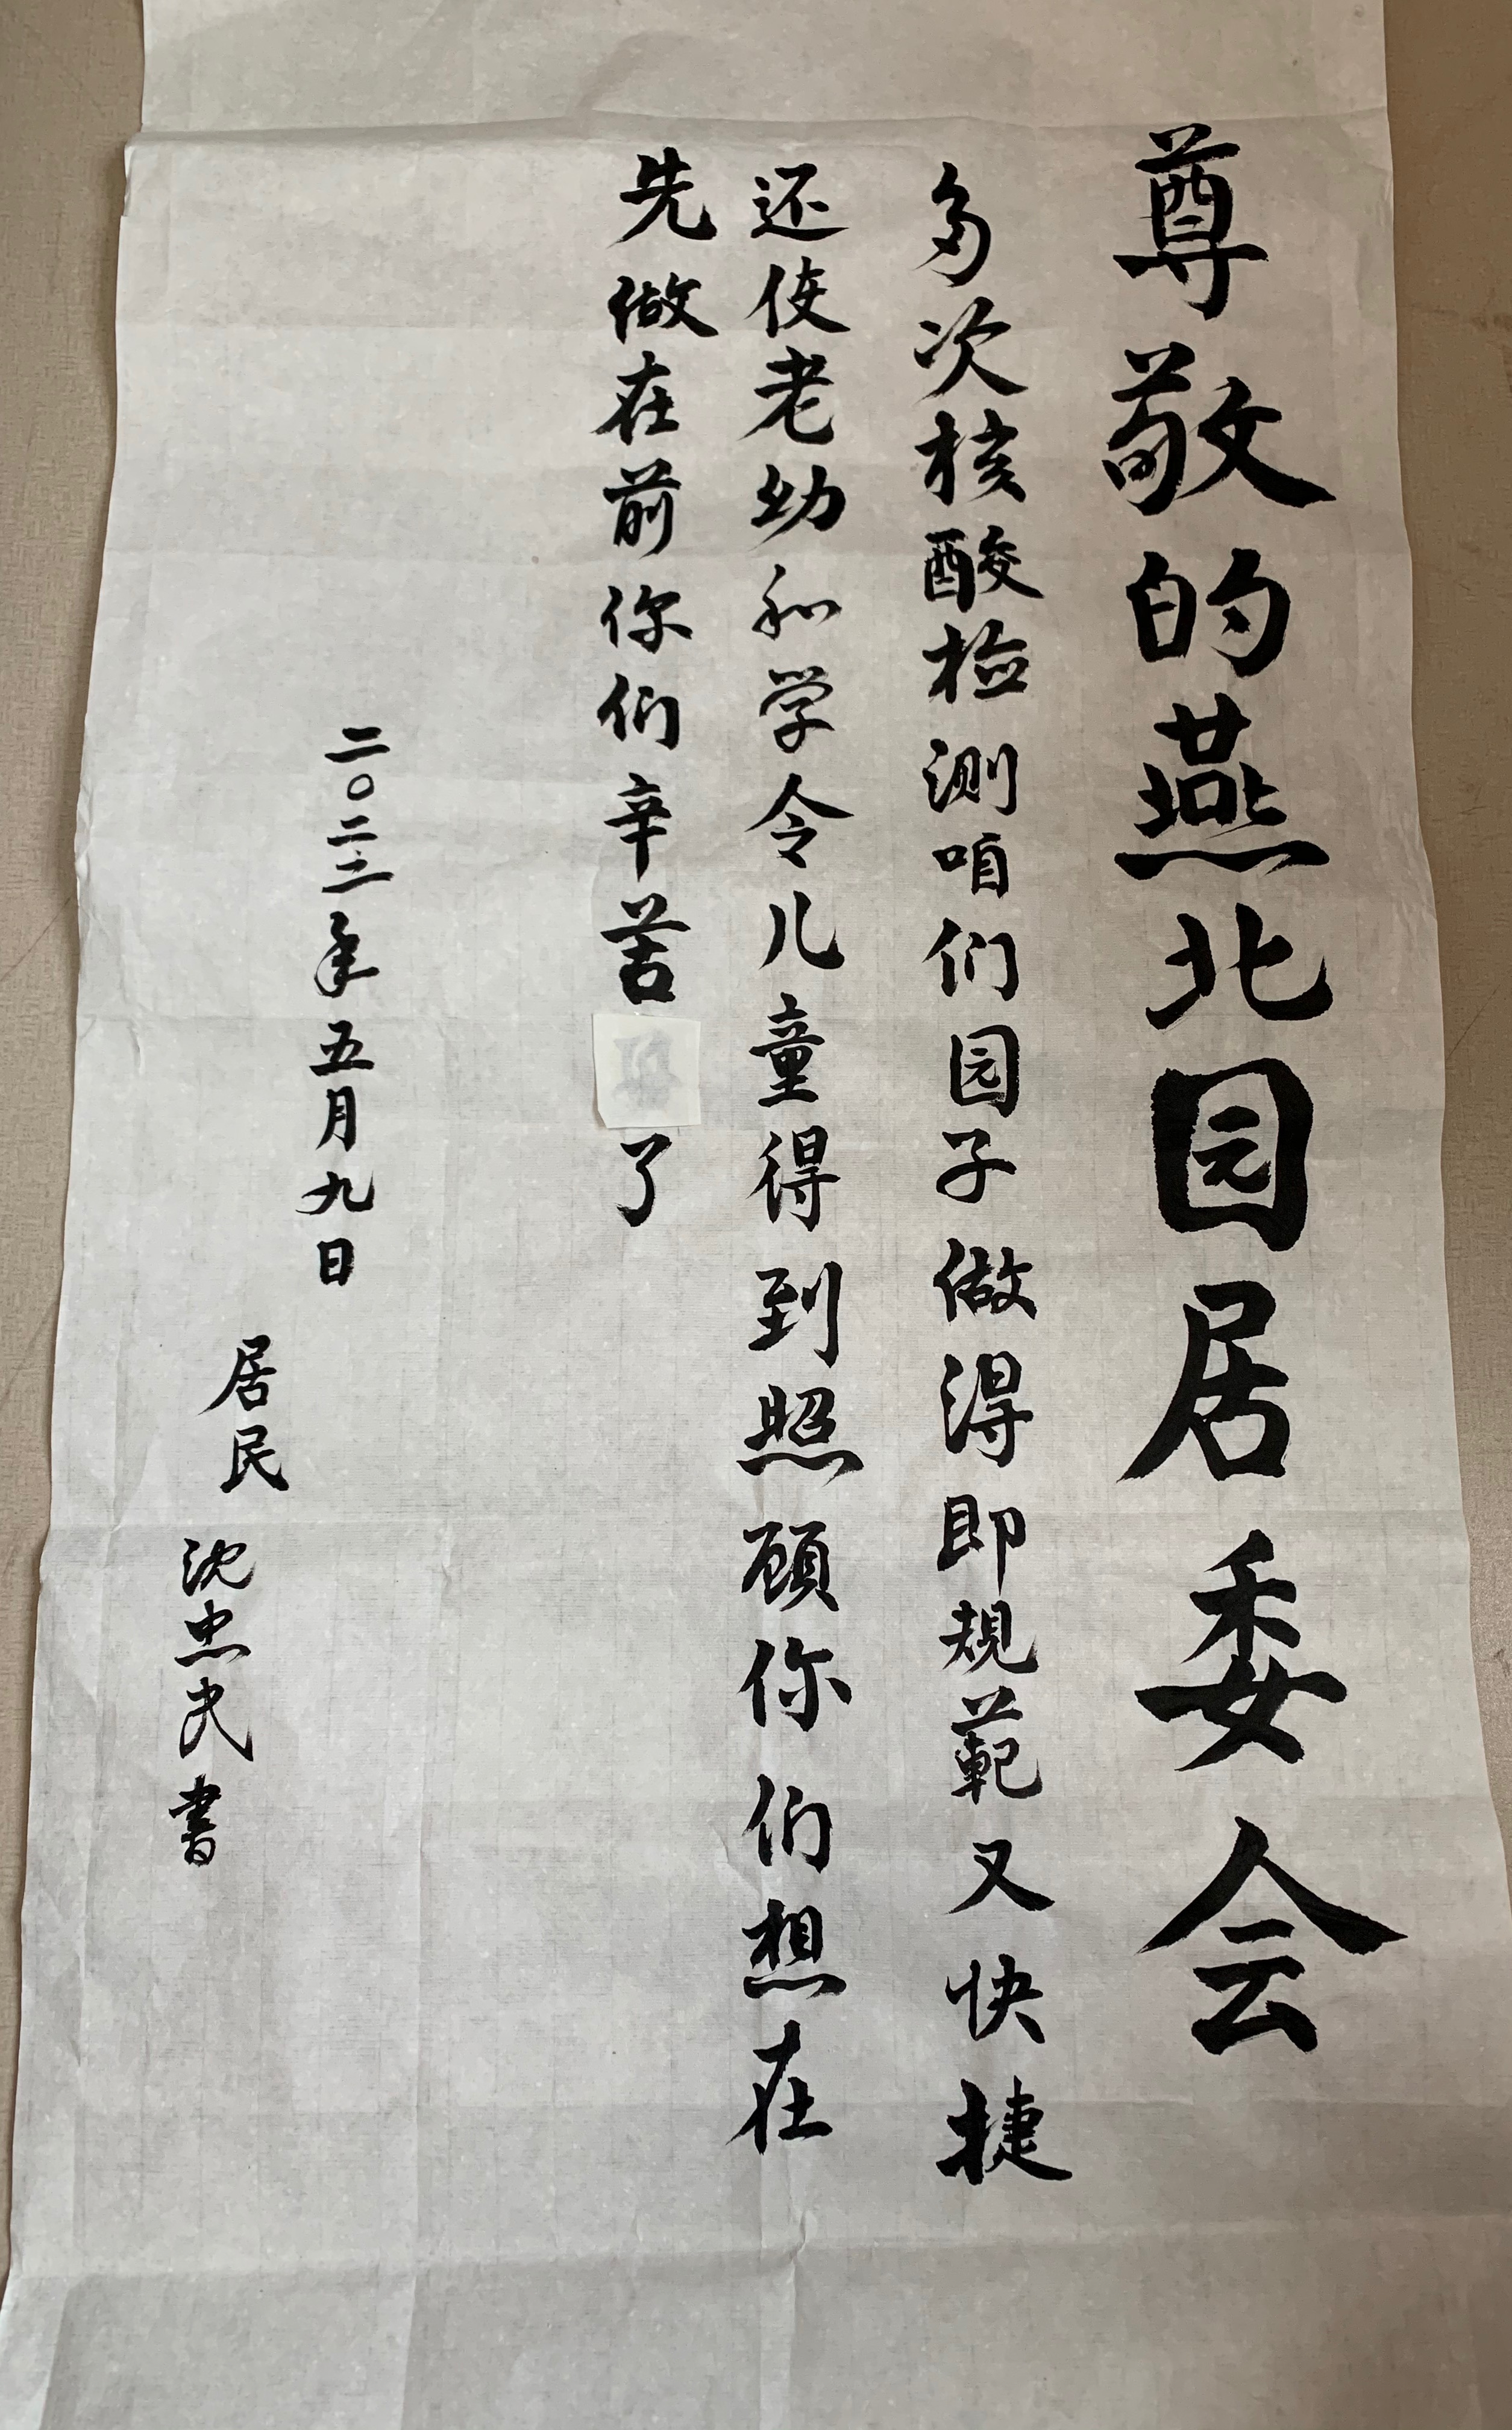 尊敬的燕北园居委会
多次核酸检测咱们园子做得即规範又快捷
还使老幼和学令儿童得到照顾你们想在
先做在前你们辛苦了
二〇二二年五月九日
居民 沈忠民書